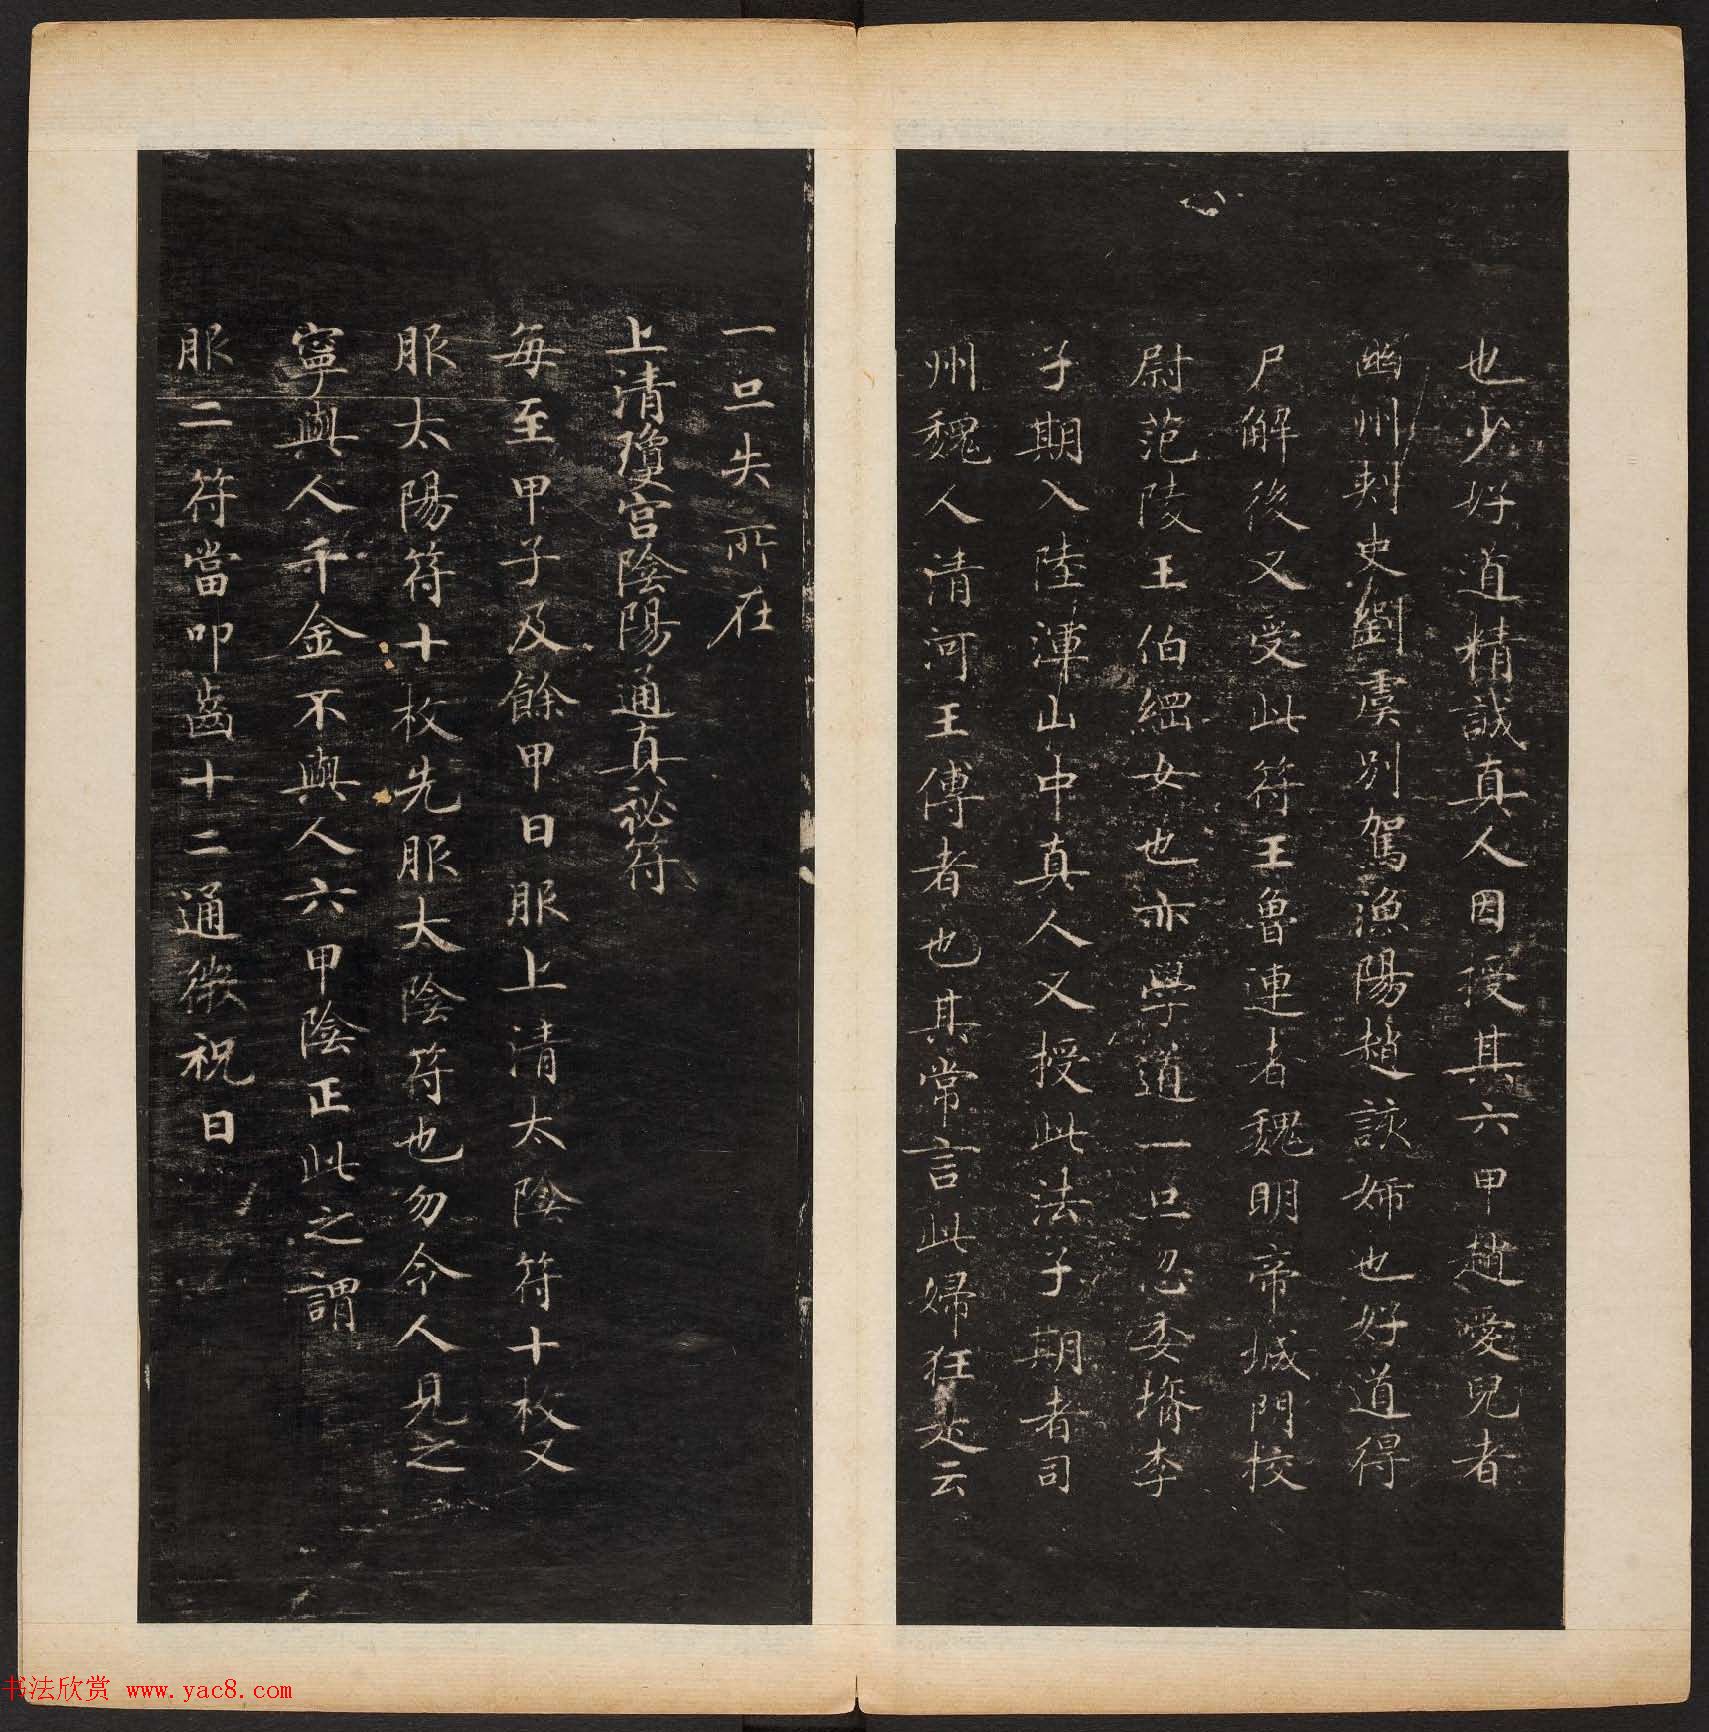 也少好道精誠真人因授其六甲趙愛兒者
幽州刾史劉虞別駕漁陽趙該姊也好道得
尸解後又受此符王魯連者魏明帝城門校
尉范陵王伯綱女也亦學道一旦忽委壻李
子期入陸渾山中真人又授此法子期者司
州魏人清河王傅者也其常言此婦狂走云
一旦失所在
上清瓊宮陰陽通真祕符
每至甲子及餘甲日服上清太陰符十枚又
服太陽符十枚先服太陰符也勿令人見之
寧與人千金不與人六甲陰正此之謂
服二符當叩齒十二通微祝曰
书法欣赏 www.yac8.com